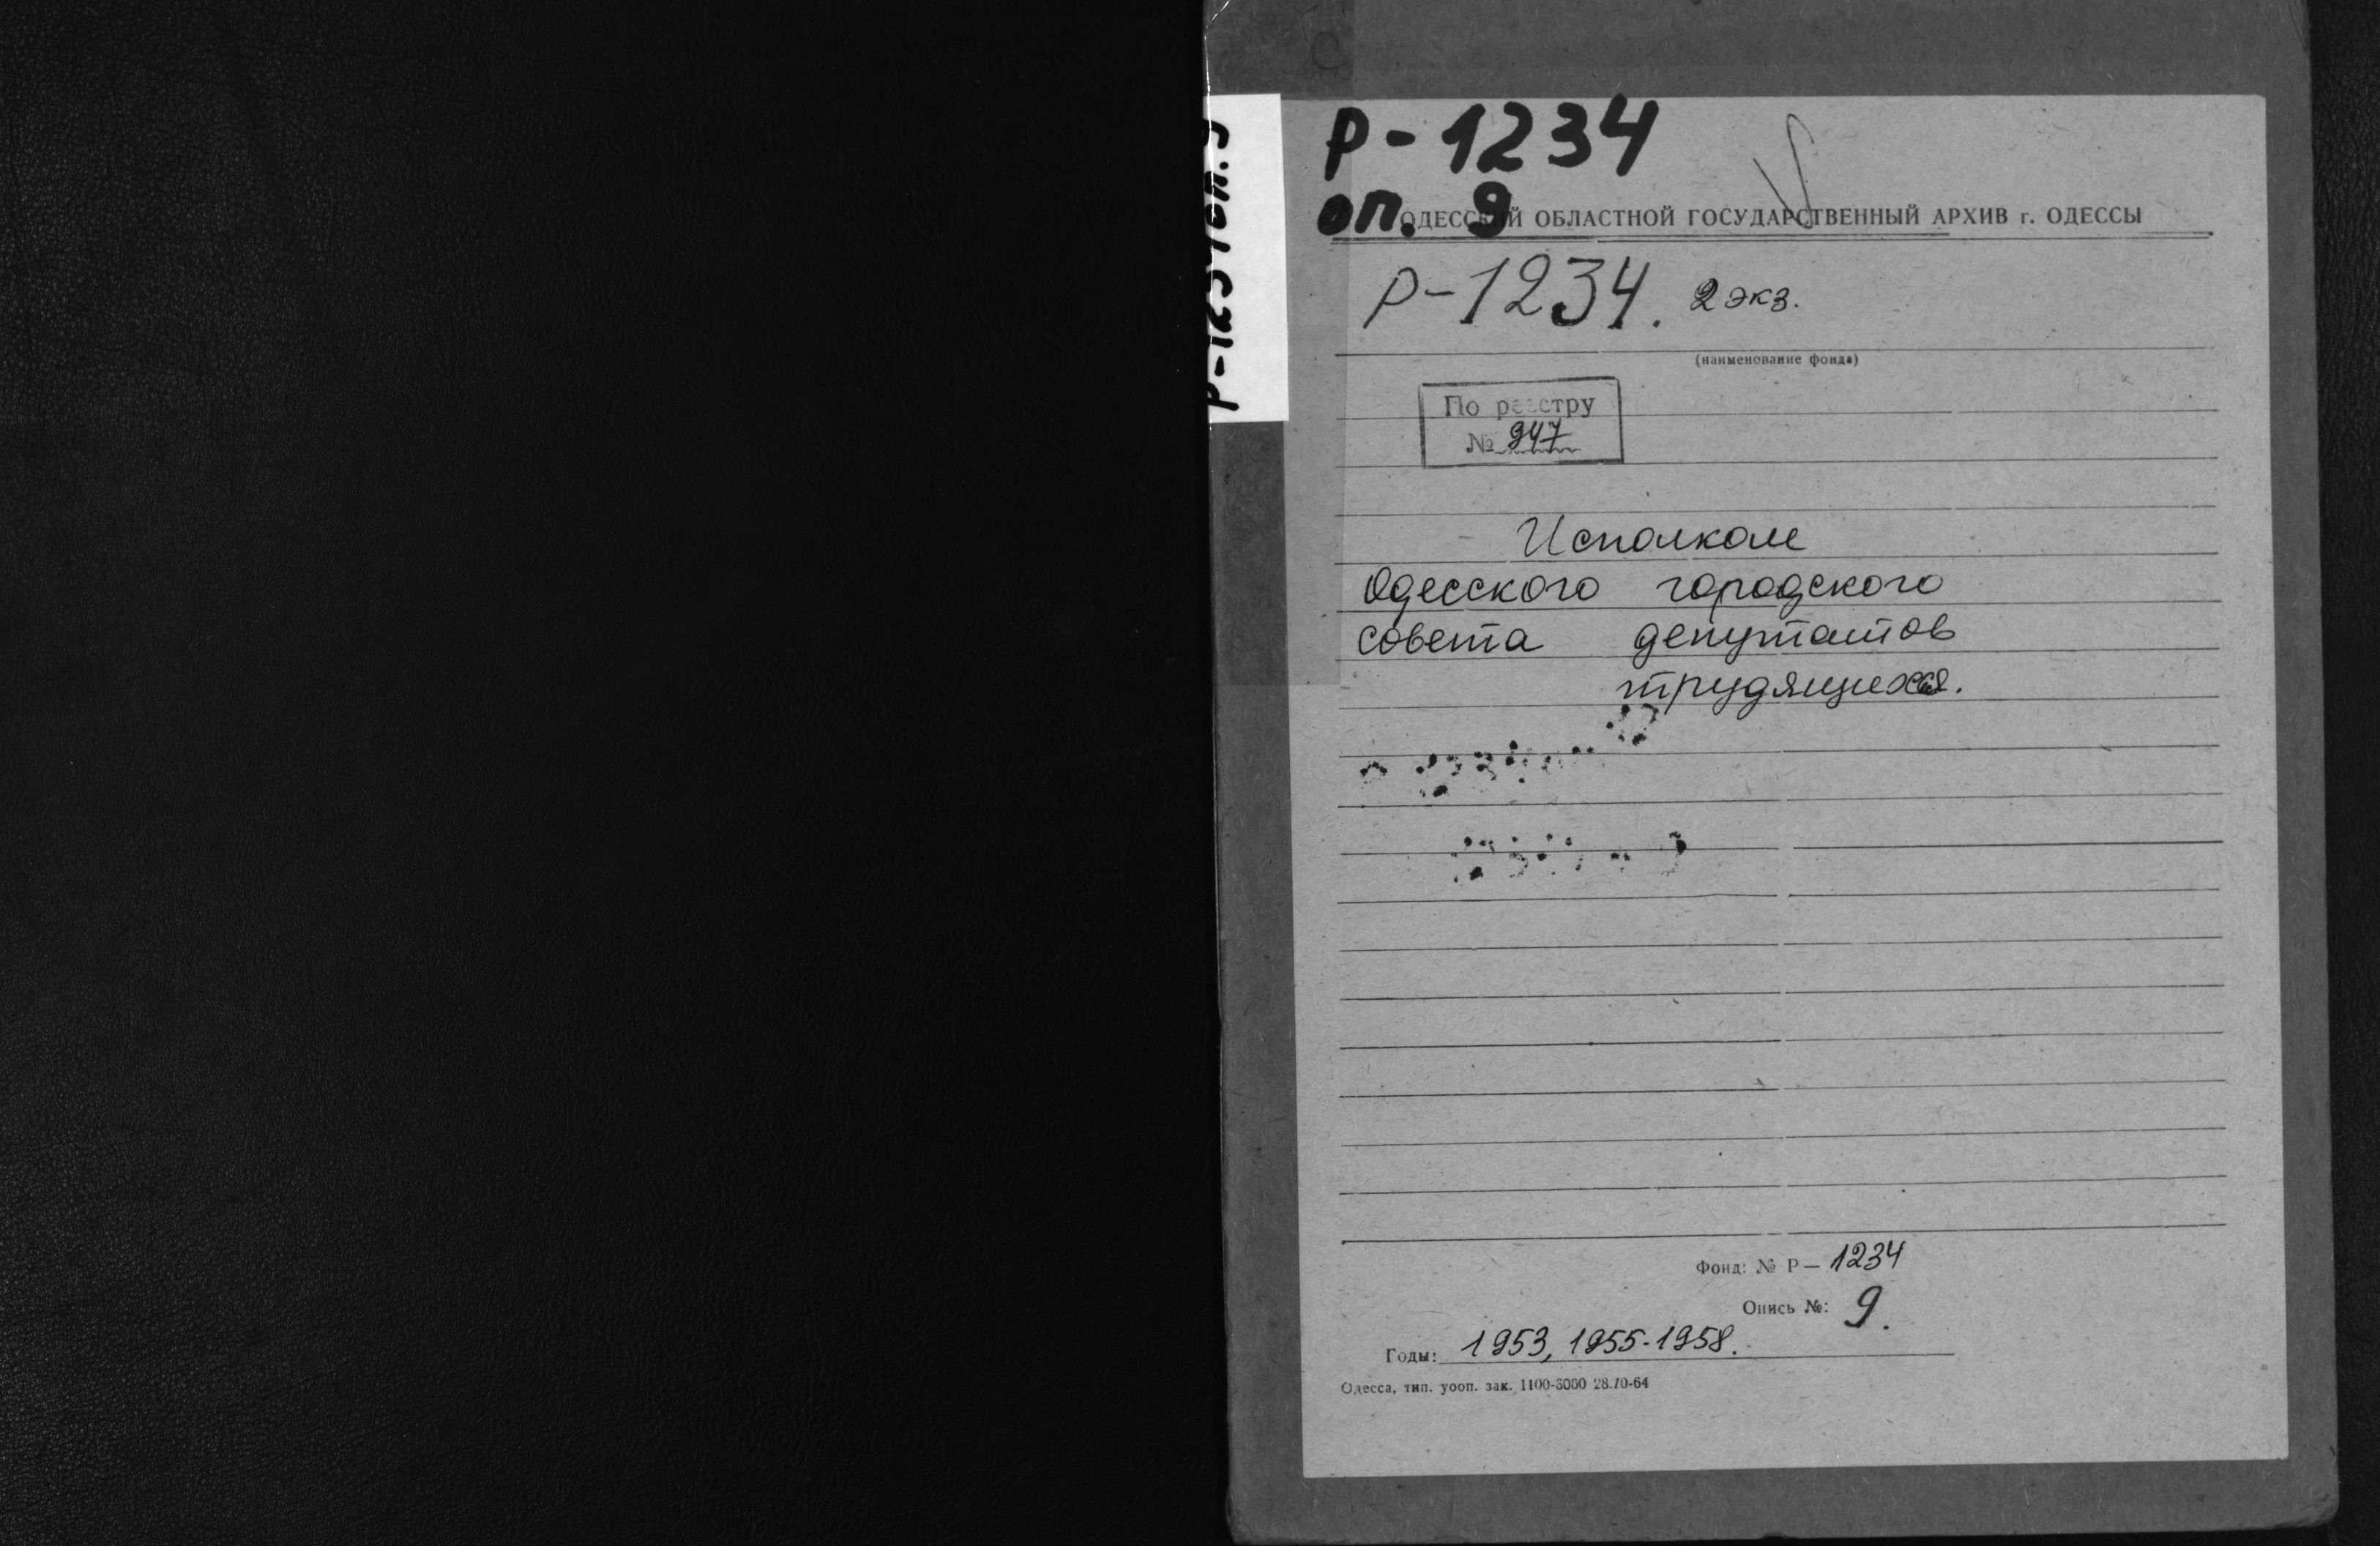 Р-1234
оп. 9
ОДЕССКИЙ ОБЛАСТНОЙ ГОСУДАРСТВЕННЫЙ АРХИВ г. ОДЕССЫ
Р-1234. 2 экз.
(наименование фонда)
По реестру
№ 947
Исполком
Одесского городского
совета депутатов
трудящихся.
Фонд: № Р— 1234
Опись №: 9.
Годы: 1953, 1955-1958.
Одесса, тип. уооп. зак. 1100-3000 28.10-64
Р-1234 оп. 9